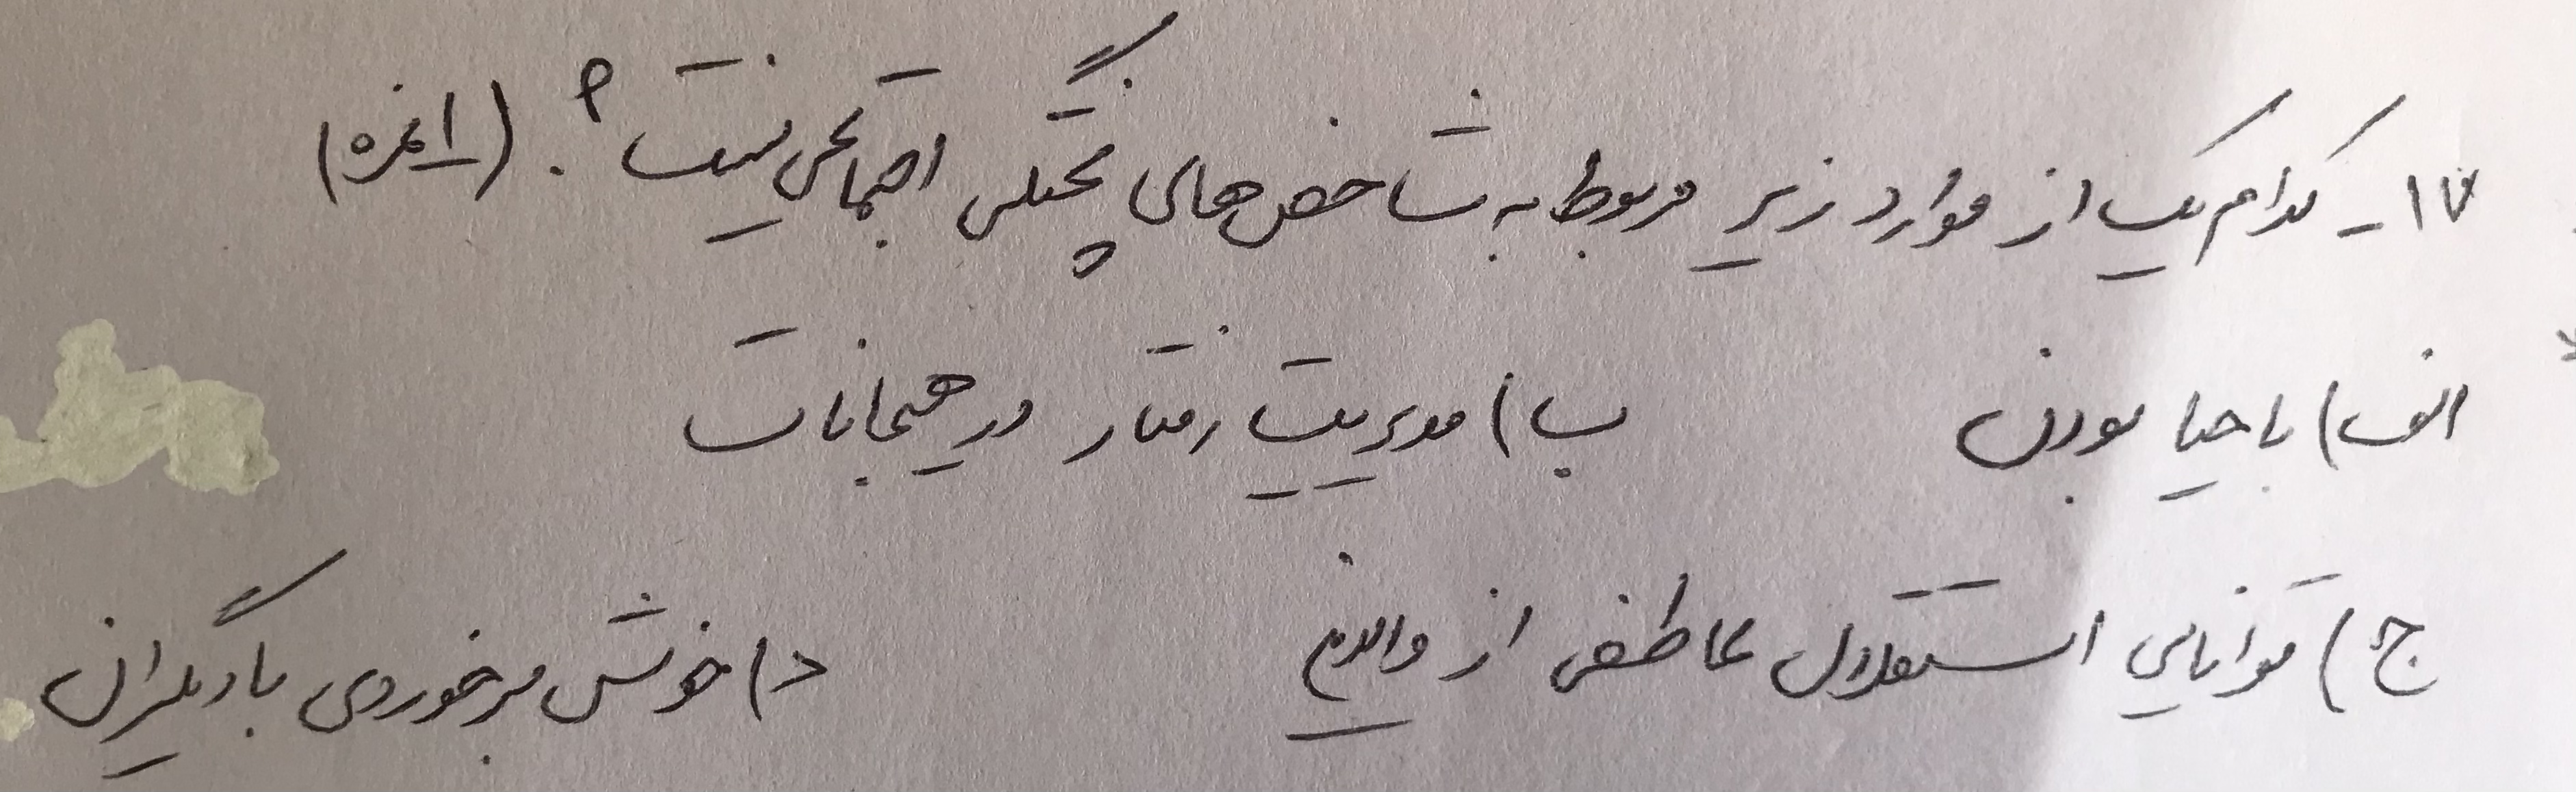 ۱۷- کدام یک از موارد زیر مربوط به شاخص های پختگی اجتماعی نیست؟ (۱نمره)
الف) با حیا بودن ب) مدیریت رفتار در هیجانات
ج) توانایی استقلال عاطفی از والدین د) خوش برخوردی با دیگران